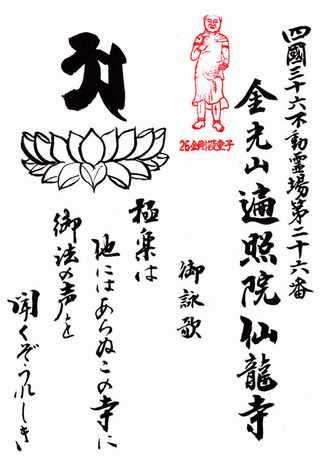 四國三十六不動霊場第二十六番
金光山遍照院仙龍寺
26金剛護童子
御詠歌
極楽は
他にはあらぬこの寺に
御法の声を
聞くぞうれしき